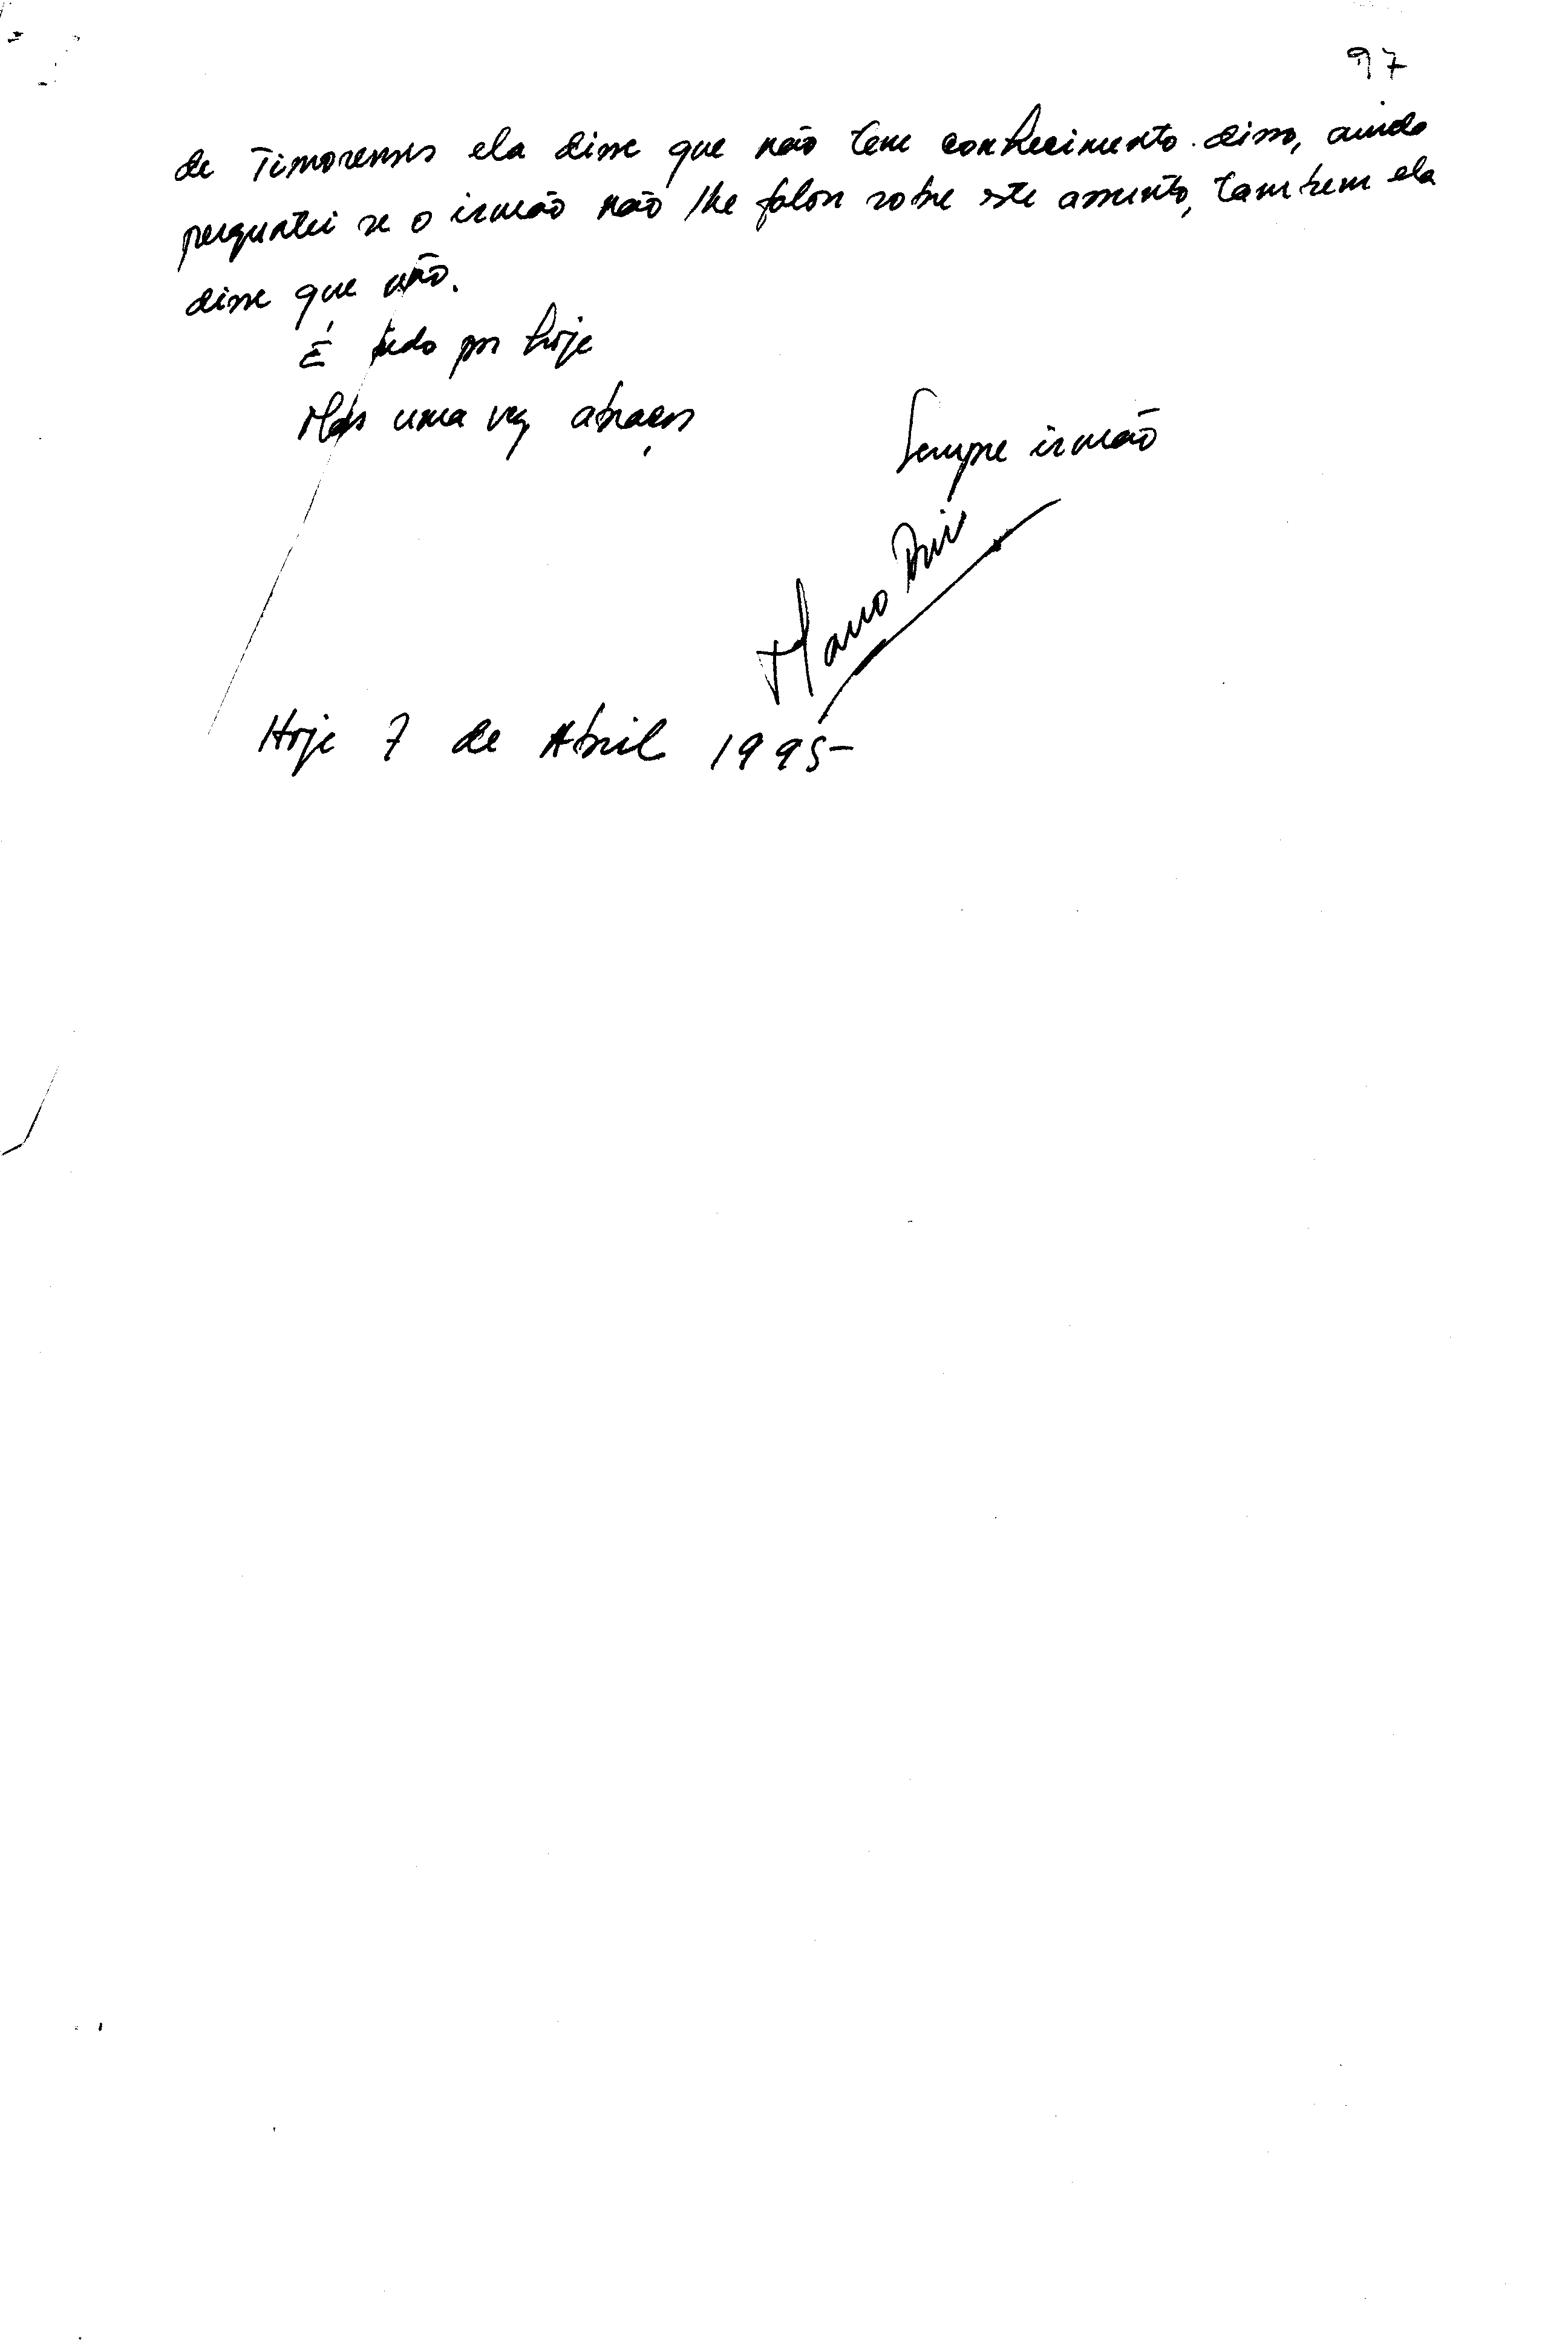 97
de Timorenses ela disse que não tem conhecimento disso, ainda
perguntei se o irmão não lhe falou sobre este assunto, tambem ela
disse que não.
É tudo por hoje
Mais uma vez abraços
Sempre irmão
Mauo
Hoje 7 de Abril 1995